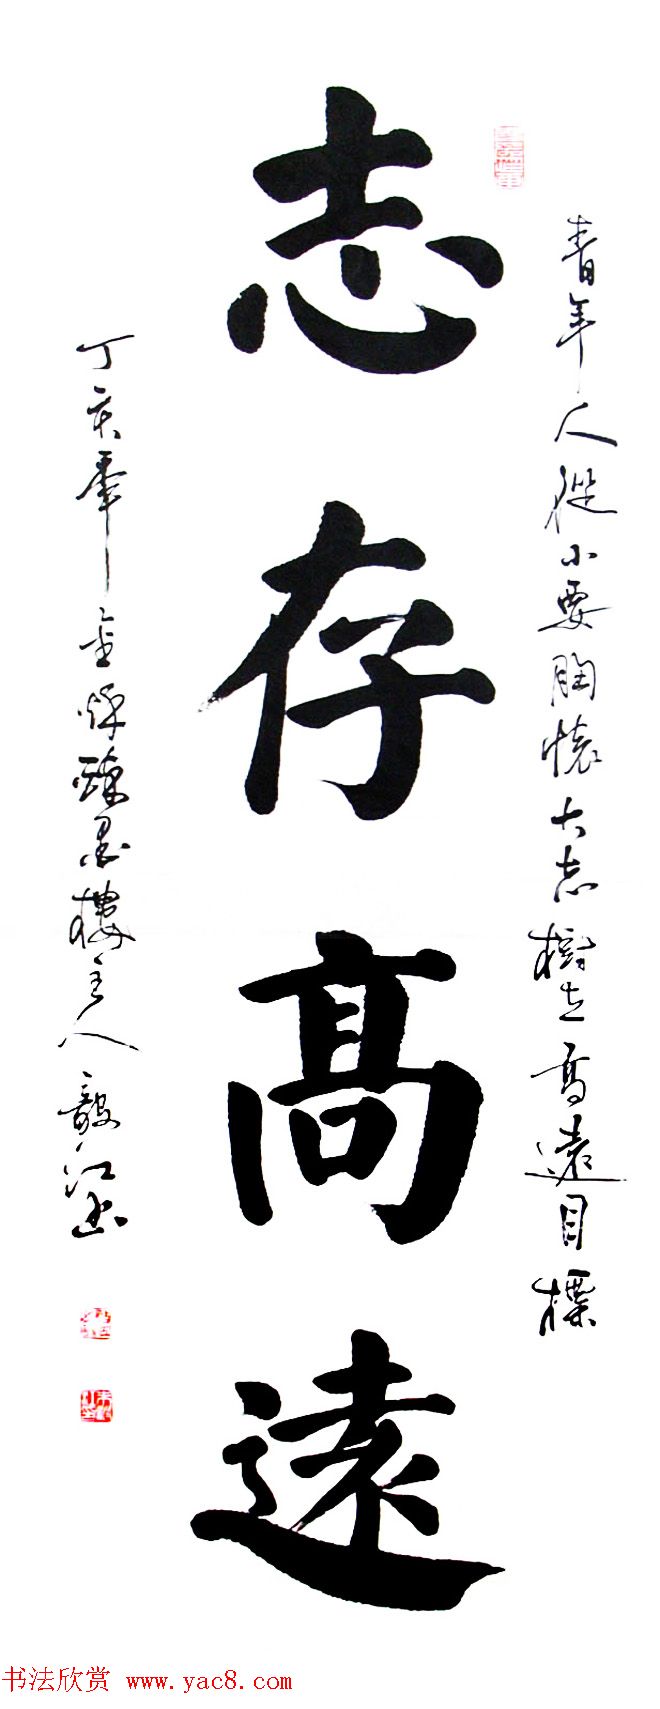 青年人從小要胸懷大志樹立高遠目標
志存高遠
丁亥年
樓主人毅江書
书法欣赏 www.yac8.com